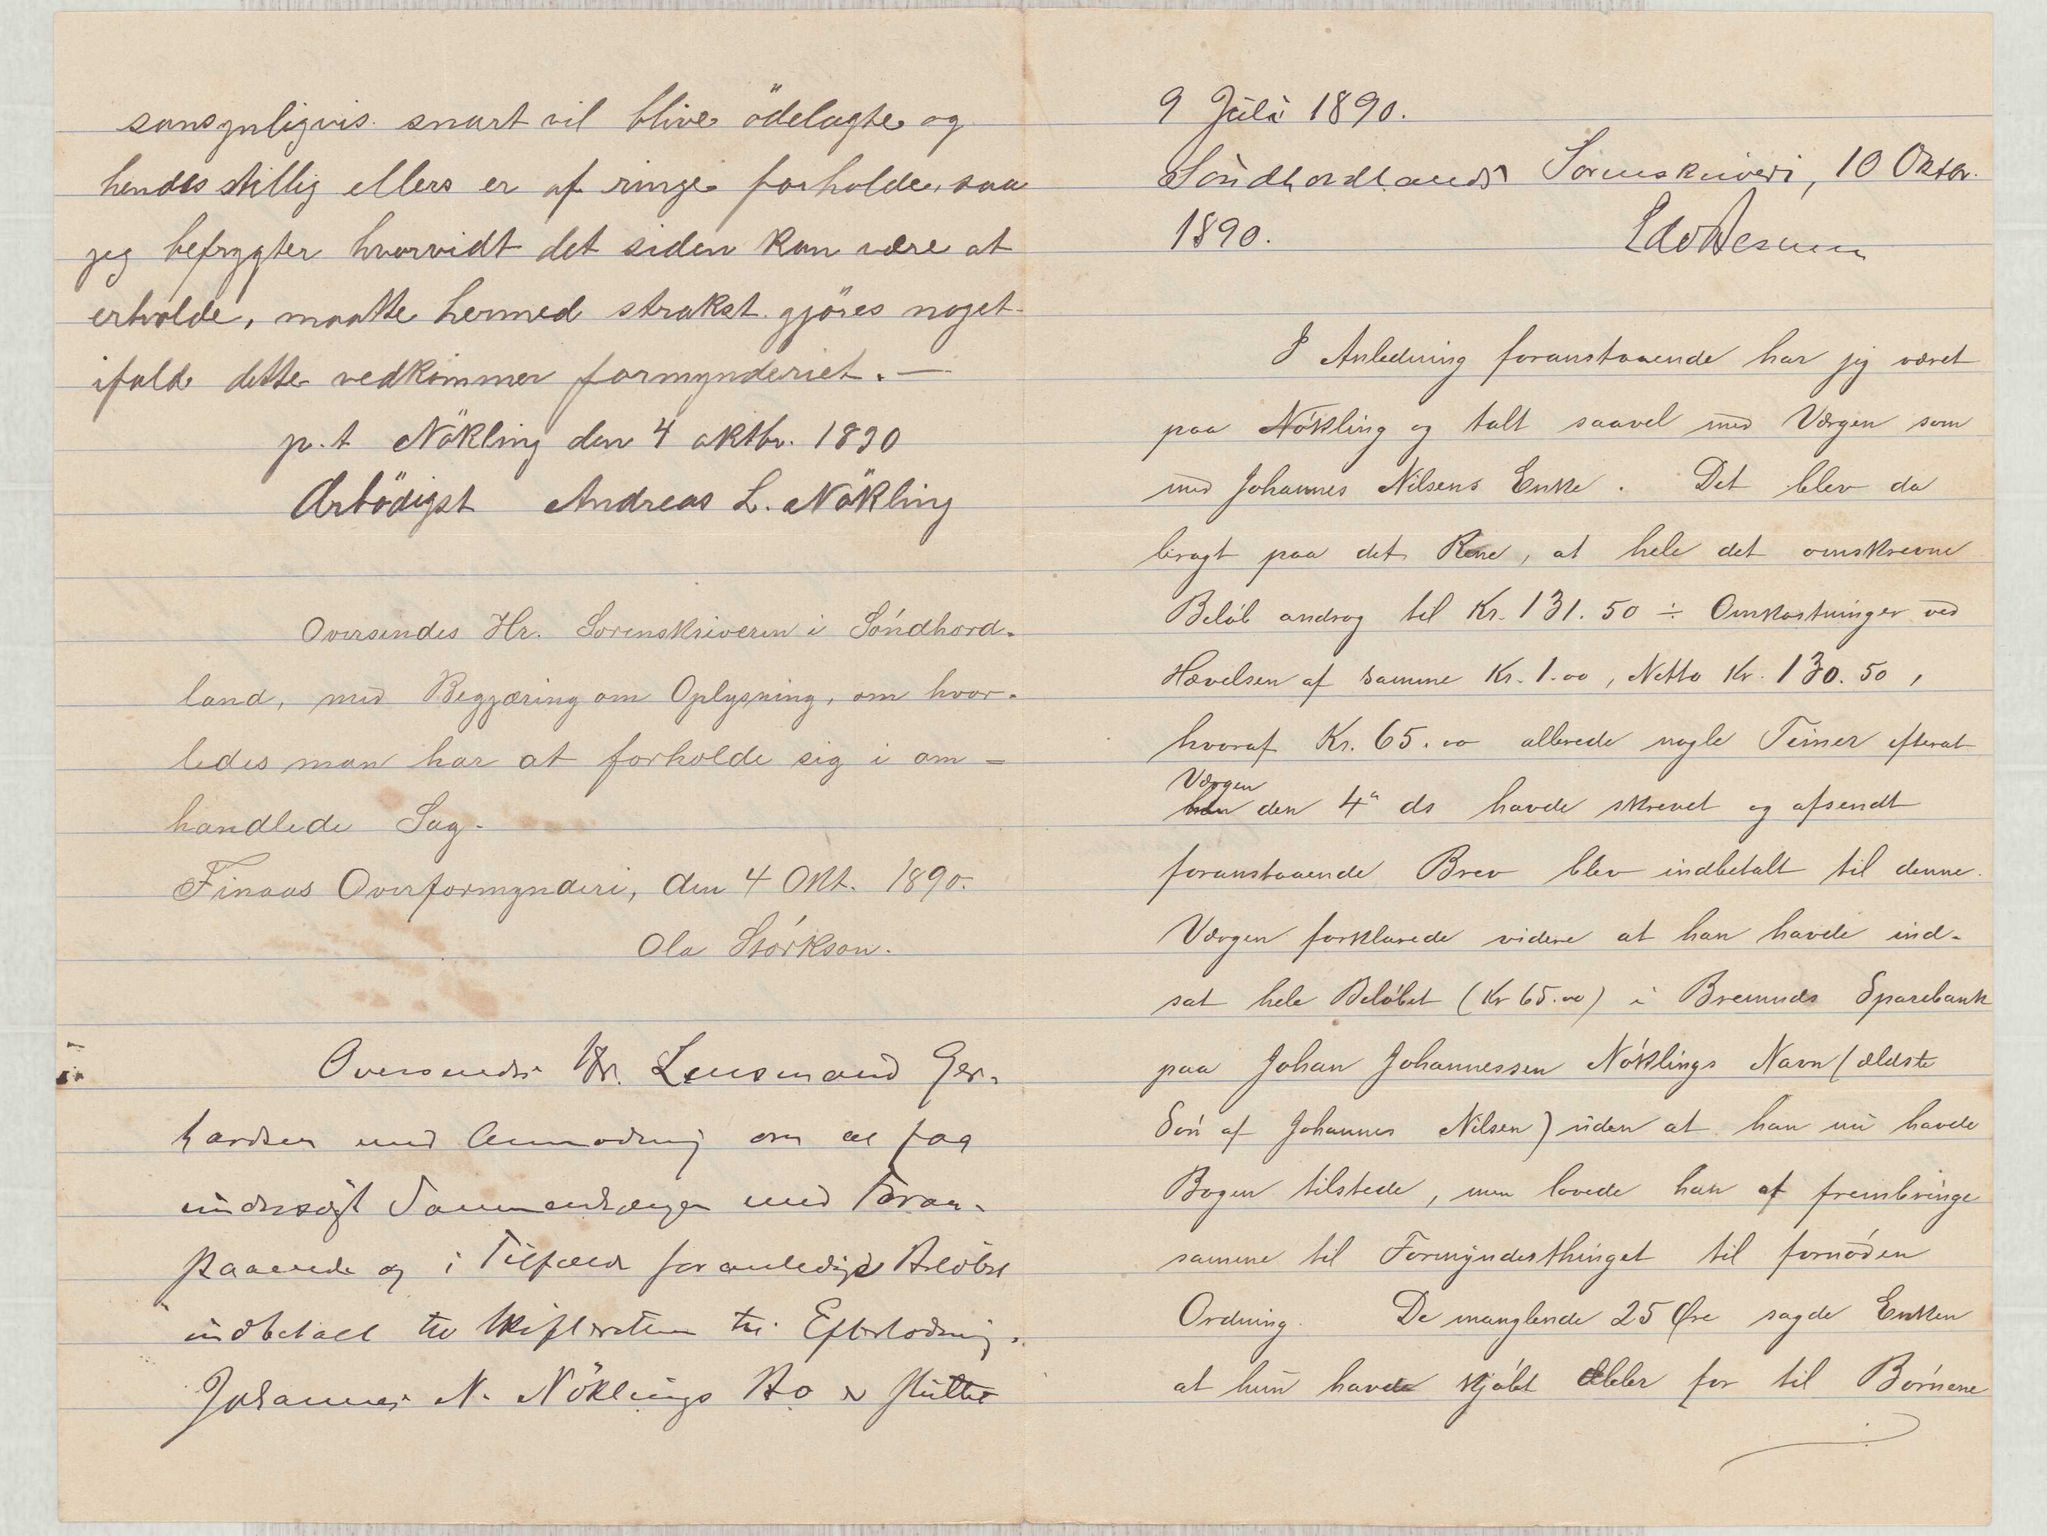 sansynligvis snart vil blive ödelagte og
hendes stillig ellers er af ringe forholde, saa
jeg befrygter hvorvidt det siden kan være at
erholde, maatte hermed strakst gjöres noget
ifald dette vedkommer formynderiet. —
p. t Nökling den 4 oktbr. 1890
Ærbödigst Andreas L. Nökling
Oversendes Hr. Sorenskriveren i Söndhord-
land, med Begjæring om Oplysning, om hvor-
ledes man har at forholde sig i om-
handlede Sag.
Finaas Overformynderi, den 4 Okt. 1890.
Ola Störkson.
Oversendes Hr. Lensmand Ger-
hardsen med Anmodning om at faa
undersögt Sammenhængen med Foran-
staaende og i Tilfælde foranlediget Belöbet
indbetalt til Skifteretten til Efterlodning.
Johannes N. Nöklings Bo er sluttet
9 Juli 1890.
Söndhordlands Sorenskriveri, 10 Oktbr.
1890.
I Anledning foranstaaende har jeg været
paa Nökling og talt saavel med Værgen som
med Johannes Nilsens Enke. Det blev da
bragt paa det Rene, at hele det omskrevne
Belöb androg til Kr. 131.50 ÷ Omkostninger ved
Hævelsen af samme Kr. 1.00, Netto Kr. 130.50,
hvoraf Kr. 65.00 allerede nogle Timer efterat
Værgen den 4de ds havde skrevet og afsendt
foranstaaende Brev blev indbetalt til denne.
Værgen forklarede videre at han havde ind-
sat hele Belöbet (Kr 65.00) i Bremnds Sparebank
paa Johan Johannessen Nöklings Navn (ældste
Sön af Johannes Nilsen) uden at han nu havde
Bogen tilstede, men lovede han at frembringe
samme til Formynderthinget til fornöden
Ordning. De manglende 25 Øre sagde Enken
at hun havde kjöbt Æbler for til Börnene